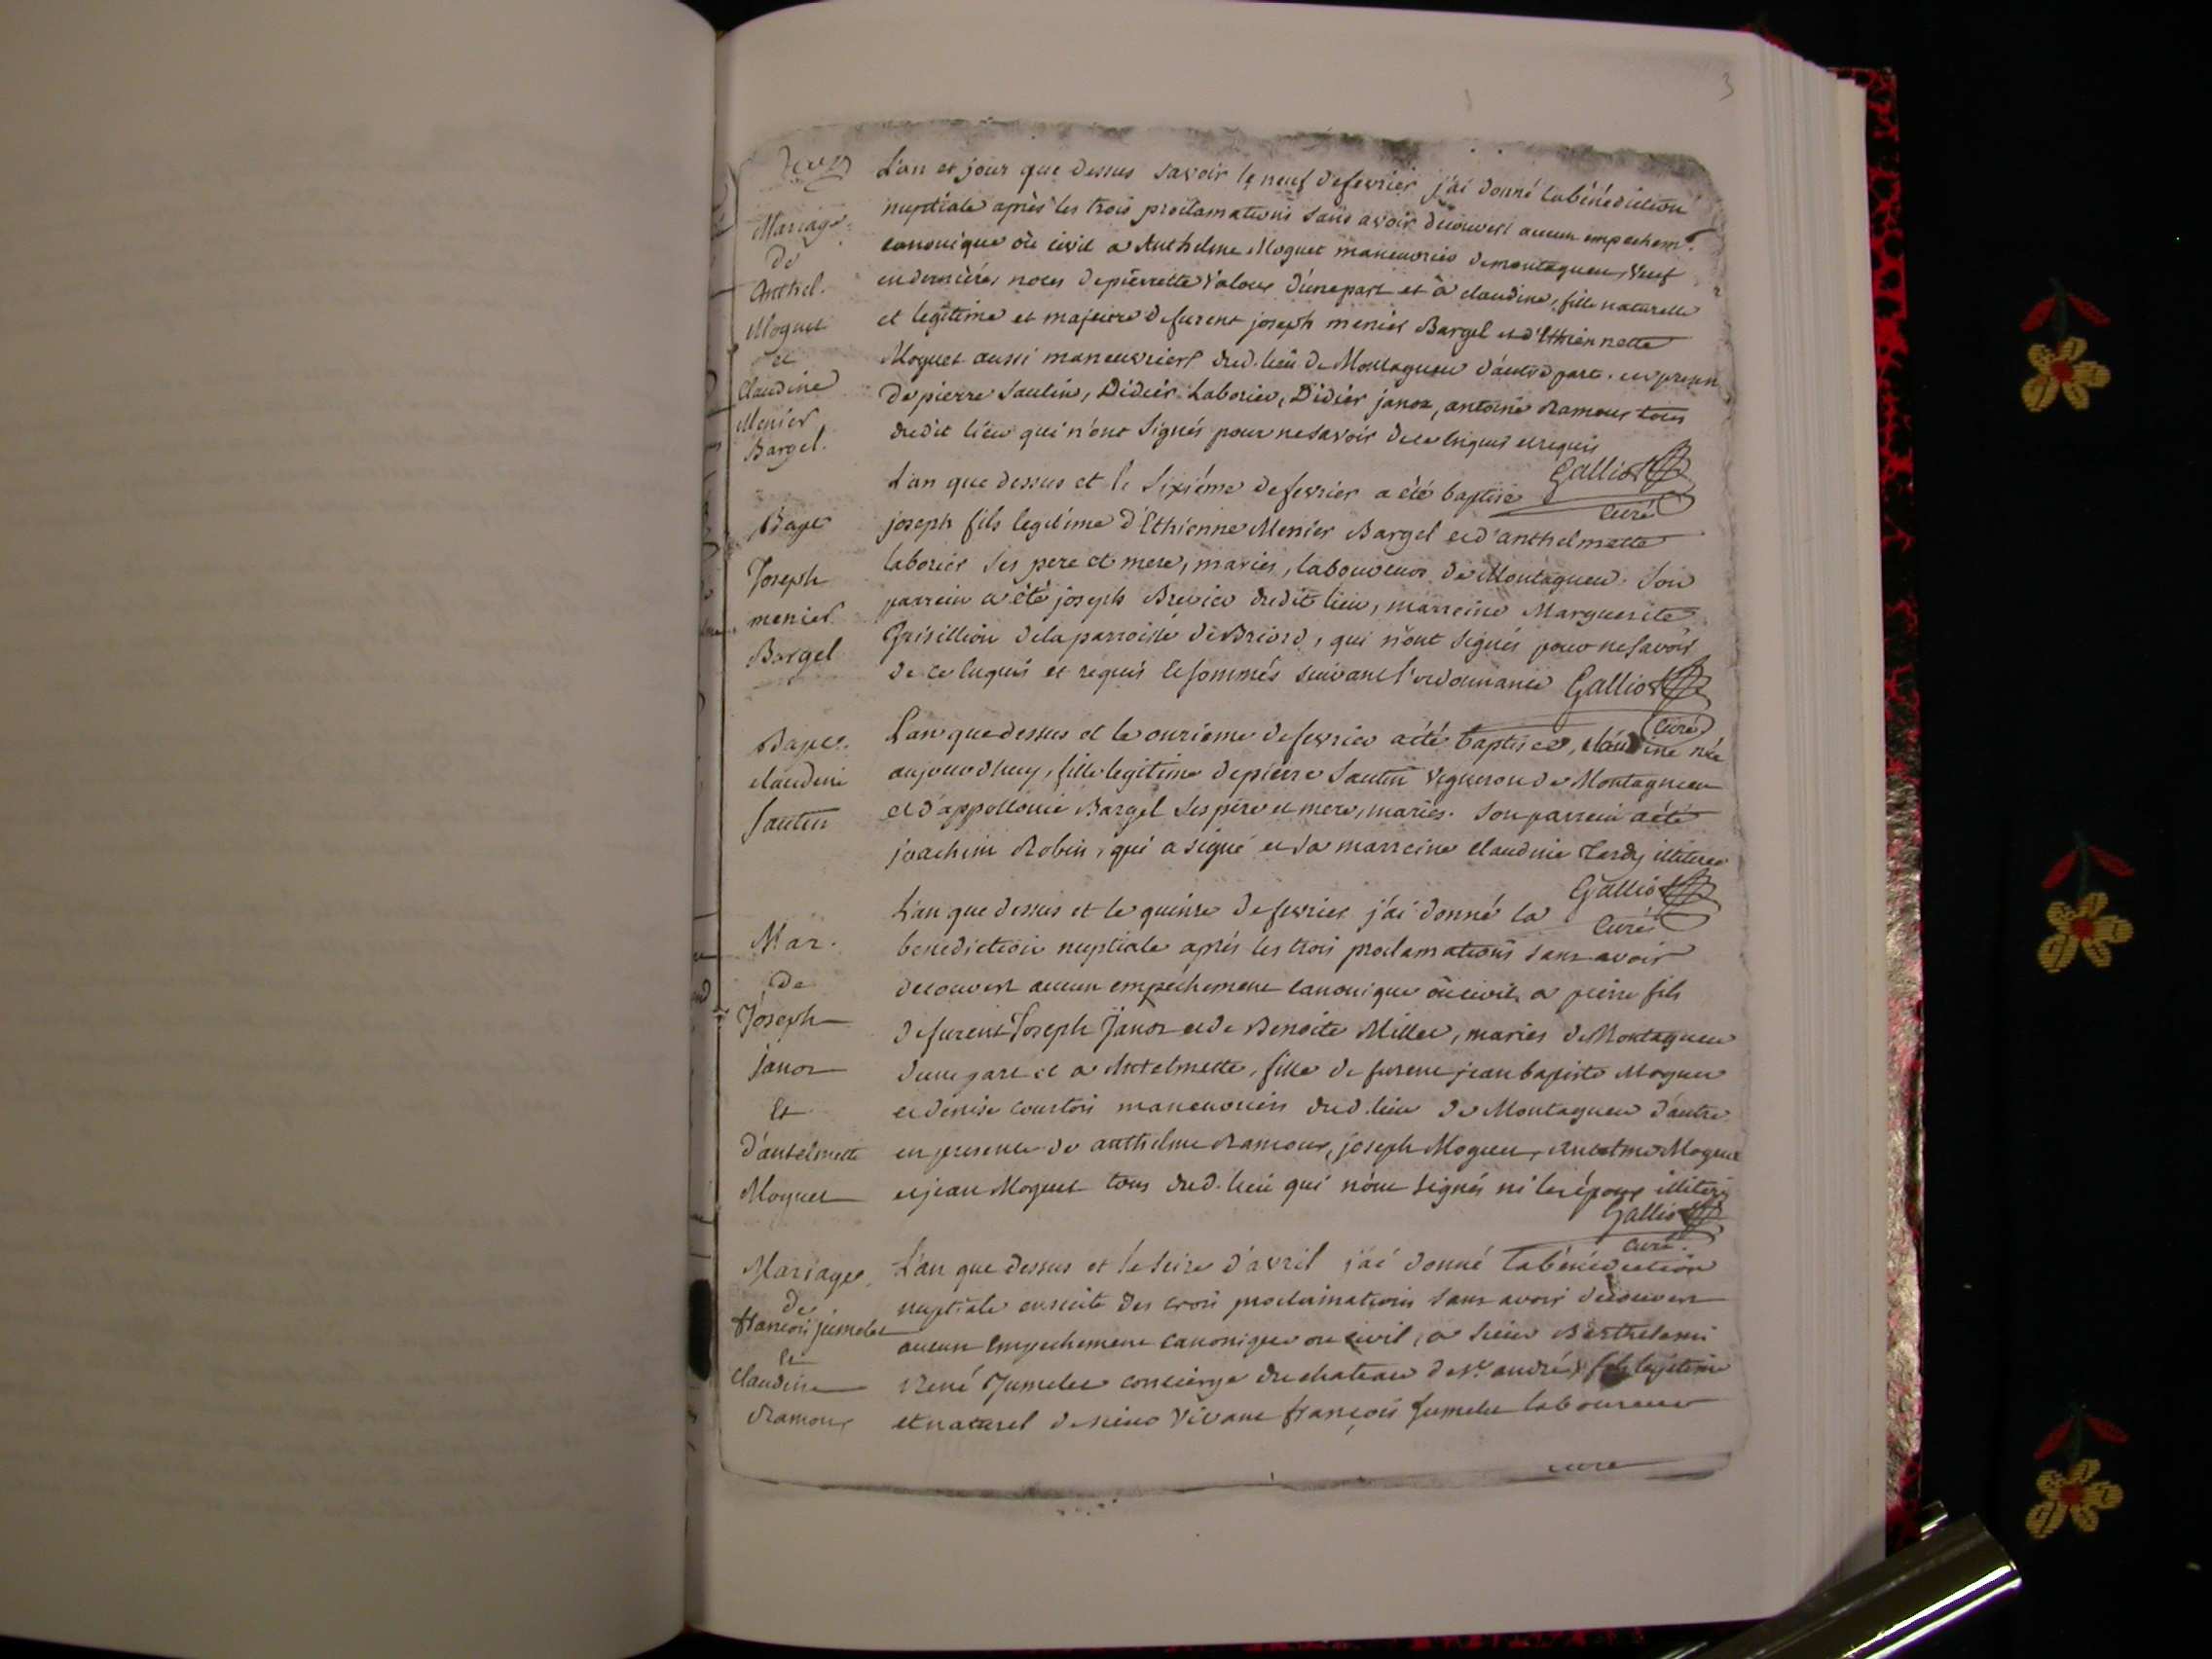 3
L'an et jour que dessus savoir le neuf defevrier j'ai donné labénédiction
nuptiale après les trois proclamations sans avoir decouvert aucun empechem.t
canonique où civil a Anthelme Moguet maneuvrier demontagneu, veuf
en dernières noces depierrette Valoux d'unepart et à claudine, fille naturelle
et legitime et majeure defurent joseph menier Bargel et d'Ethiennette
Moguet aussi maneuvriers dud. lieu de Montagneu d'autre part. en presen
de pierre Sautin, Didier Laborier, Didier janoz, antoine Ramoux tous
dudit lieu qui n'ont signés pour nesavoir dece enquis et requis
Galliot
curé
Mariage
de
Anthel.
Moguet
et
Claudine
Menier
Bargel.
L'an que dessus et le sixiéme defevrier a été baptisé
joseph fils legitime d'Ethienne Menier Bargel et d'anthelmette
laborier ses pere et mere, mariés, laboureurs de Montagneu. Son
parrein a été joseph Brevier dudit lieu, marreine Marguerite
Grisillion dela parroisse deBriord, qui n'ont signés pour nesavoir
de ce enquis et requis et sommés suivant l'ordonnance Galliot
curé
Bapt
Joseph
menier
Bargel
L'an quedessus et le onzieme defevrier aété baptisée, claudine née
aujourdhuy, fille legitime depierre Sautin vigneron de Montagneu
et d'appollonie Bargel ses père et mere, mariés. Son parrein aété
joachim Robin, qui a signé et sa marreine claudine Tardy illiteree
Galliot
curé
Bapt.
claudine
Sautin
L'an que dessus et le quinze defevrier j'ai donné la
benediction nuptiale aprés les trois proclamations sans avoir
decouvert aucun empéchement canonique où civil, a pierre fils
defurent Joseph Janoz et de Benoite Millet, mariés de Montagneu
d'une part et a Antelmette, fille de furent jean baptiste Moguet
et denise courtois maneuvriers dud. lieu de Montagneu d'autre
en presence de anthelme Ramoux, joseph Moguet, Antelme Moguet
et jean Moguet tous dud. lieu qui n'ont signés ni les époux illiterés
Galliot
curé.
Mar.
de
Joseph
janoz
Et
d'antelmette
Moguet
L'an que dessus et le seize d'avril j'ai donné labénédiction
nuptiale ensuite des trois proclamations sans avoir decouvert
aucun empechement canonique ou civil, a sieur Barthelemi
René Jumelet concierge du chateau de st. andré, fils legitime
et naturel de sieur vivant françois Jumelet laboureur
Mariage
de
françois jumelet
et
Claudine
Ramoux
curé